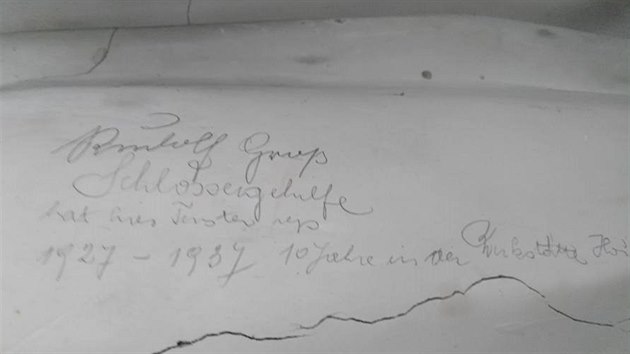 Rudolf Groß
Schlossergehilfe
hat hier Fenster rep
1927 – 1937 10 Jahre in der